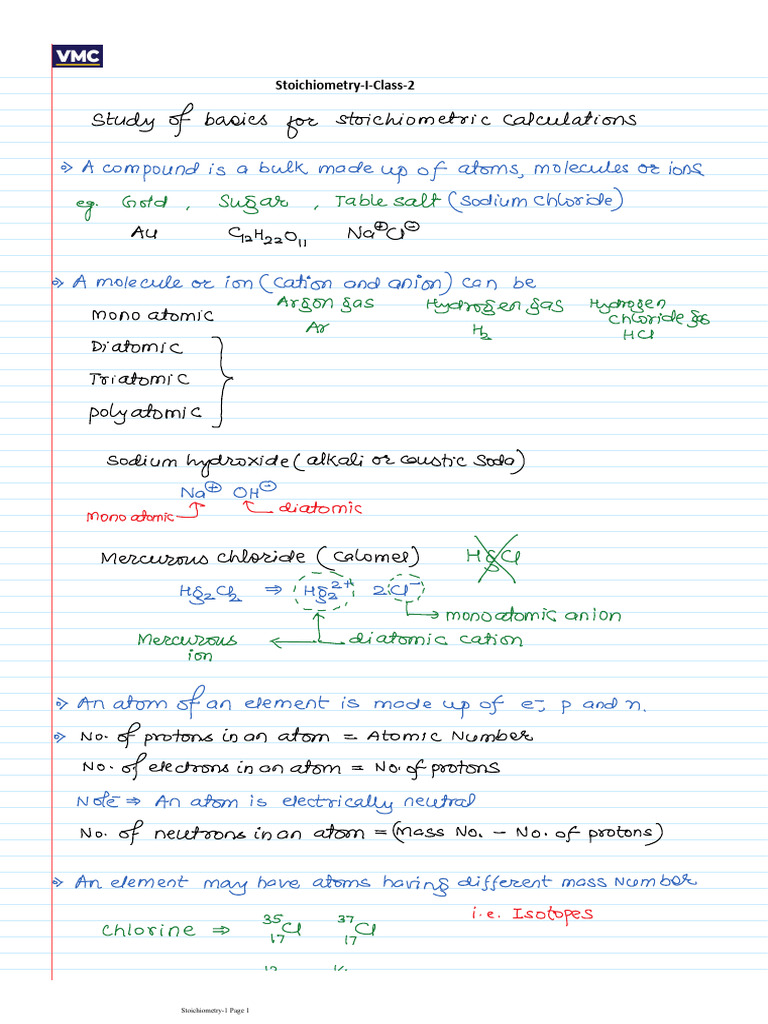 VMC
Stoichiometry-I-Class-2
Study of basics for stoichiometric calculations
⇒ A compound is a bulk made up of atoms, molecules or ions
eg. Gold , Sugar , Table salt (Sodium Chloride)
Au C₁₂H₂₂O₁₁ Na⊕Cl⊖
⇒ A molecule or ion (cation and anion) can be
Mono atomic Argon gas Hydrogen gas Hydrogen
Ar H₂ Chloride gas
HCl
Diatomic
Triatomic
polyatomic
Sodium hydroxide (alkali or caustic soda)
Na⊕ OH⊖
Mono atomic diatomic
Mercurous chloride (Calomel) HgCl
Hg₂Cl₂ ⇒ Hg₂²⁺ 2Cl⁻
monoatomic anion
Mercurous ← diatomic cation
ion
⇒ An atom of an element is made up of e⁻, p and n.
⇒ No. of protons in an atom = Atomic Number
No. of electrons in an atom = No. of protons
Note ⇒ An atom is electrically neutral
No. of neutrons in an atom = (Mass No. – No. of protons)
⇒ An element may have atoms having different mass Number
i.e. Isotopes
Chlorine ⇒ ³⁵₁₇Cl ³⁷₁₇Cl
Stoichiometry-1 Page 1